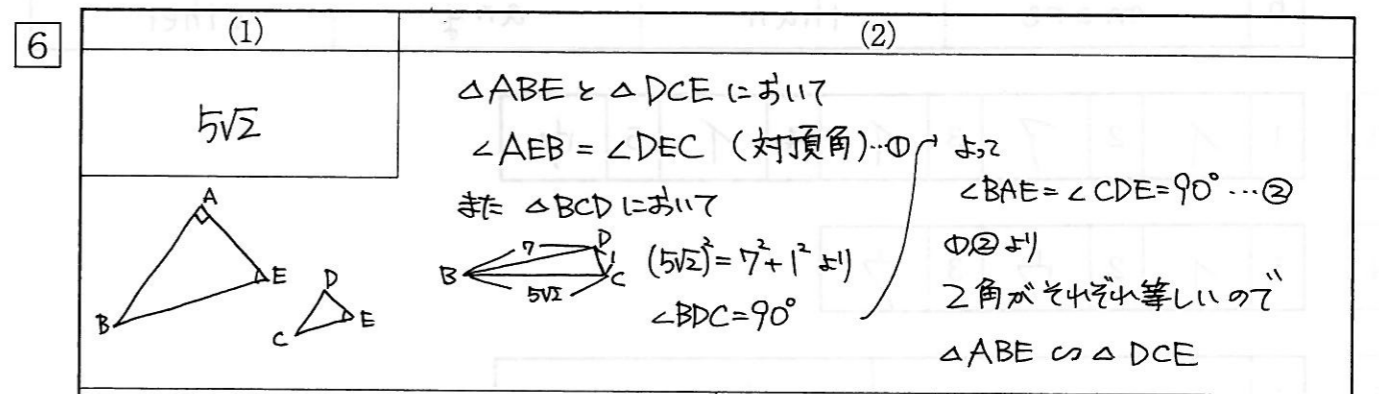 6
(1)
(2)
5√2
A
B
E
D
C
E
△ABEと△DCEにおいて
∠AEB=∠DEC (対頂角)…①
また △BCDにおいて
7
D
1
B
C
5√2
(5√2)²=7²+1²より
∠BDC=90°
よって
∠BAE=∠CDE=90°…②
①,②より
2角がそれぞれ等しいので
△ABE∽△DCE